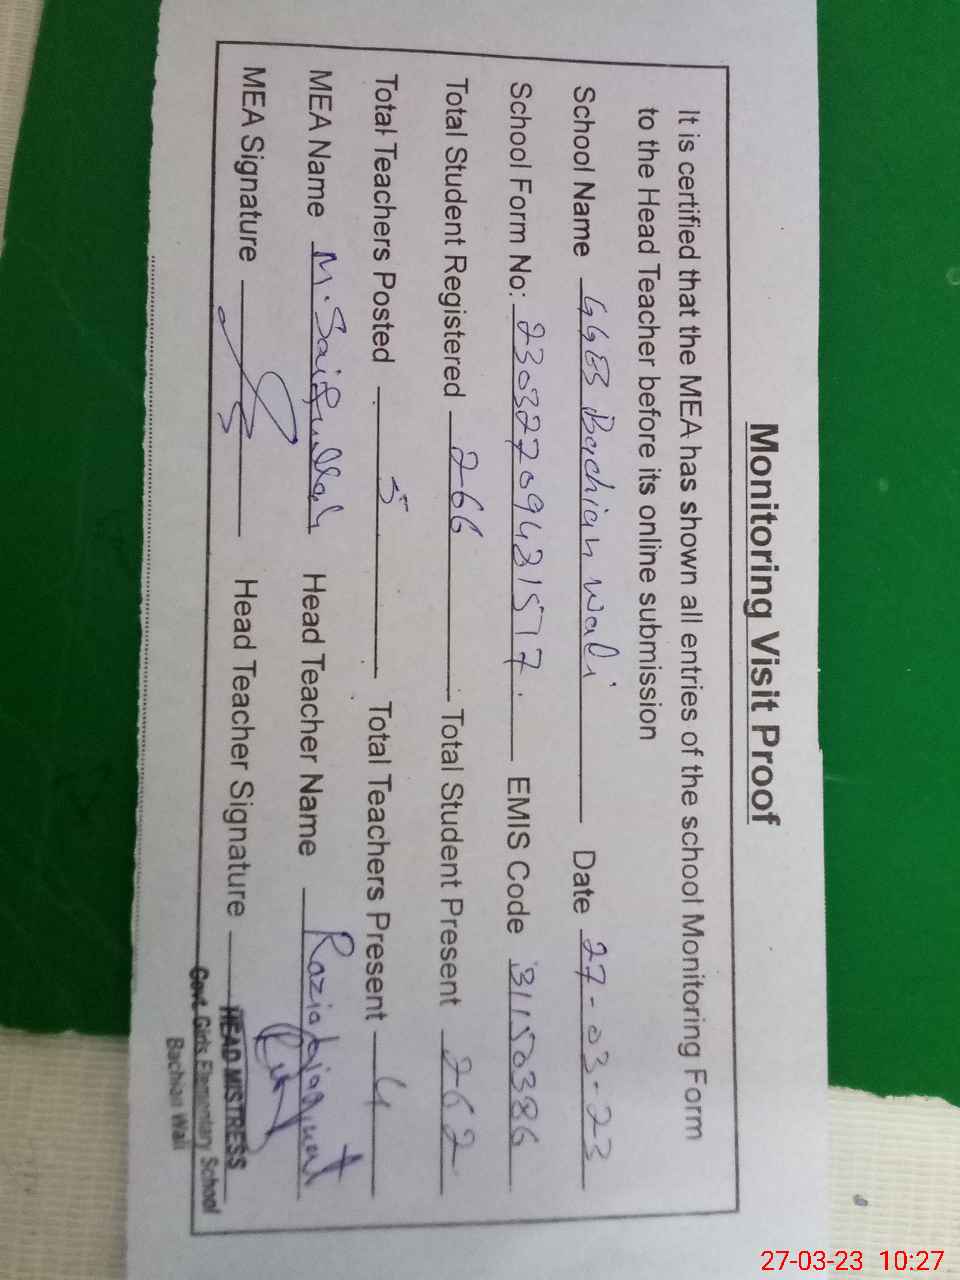 Monitoring Visit Proof
It is certified that the MEA has shown all entries of the school Monitoring Form
to the Head Teacher before its online submission
School Name GGES Bachian wali Date 27-03-23
School Form No: 2303270943157 7. EMIS Code 31150386
Total Student Registered 266 Total Student Present 262
Total Teachers Posted 5 Total Teachers Present 4
MEA Name M. Saifullah Head Teacher Name Razia
MEA Signature Head Teacher Signature
HEAD MISTRESS
Govt. Girls Elementary School
Bachian Wali
27-03-23 10:27